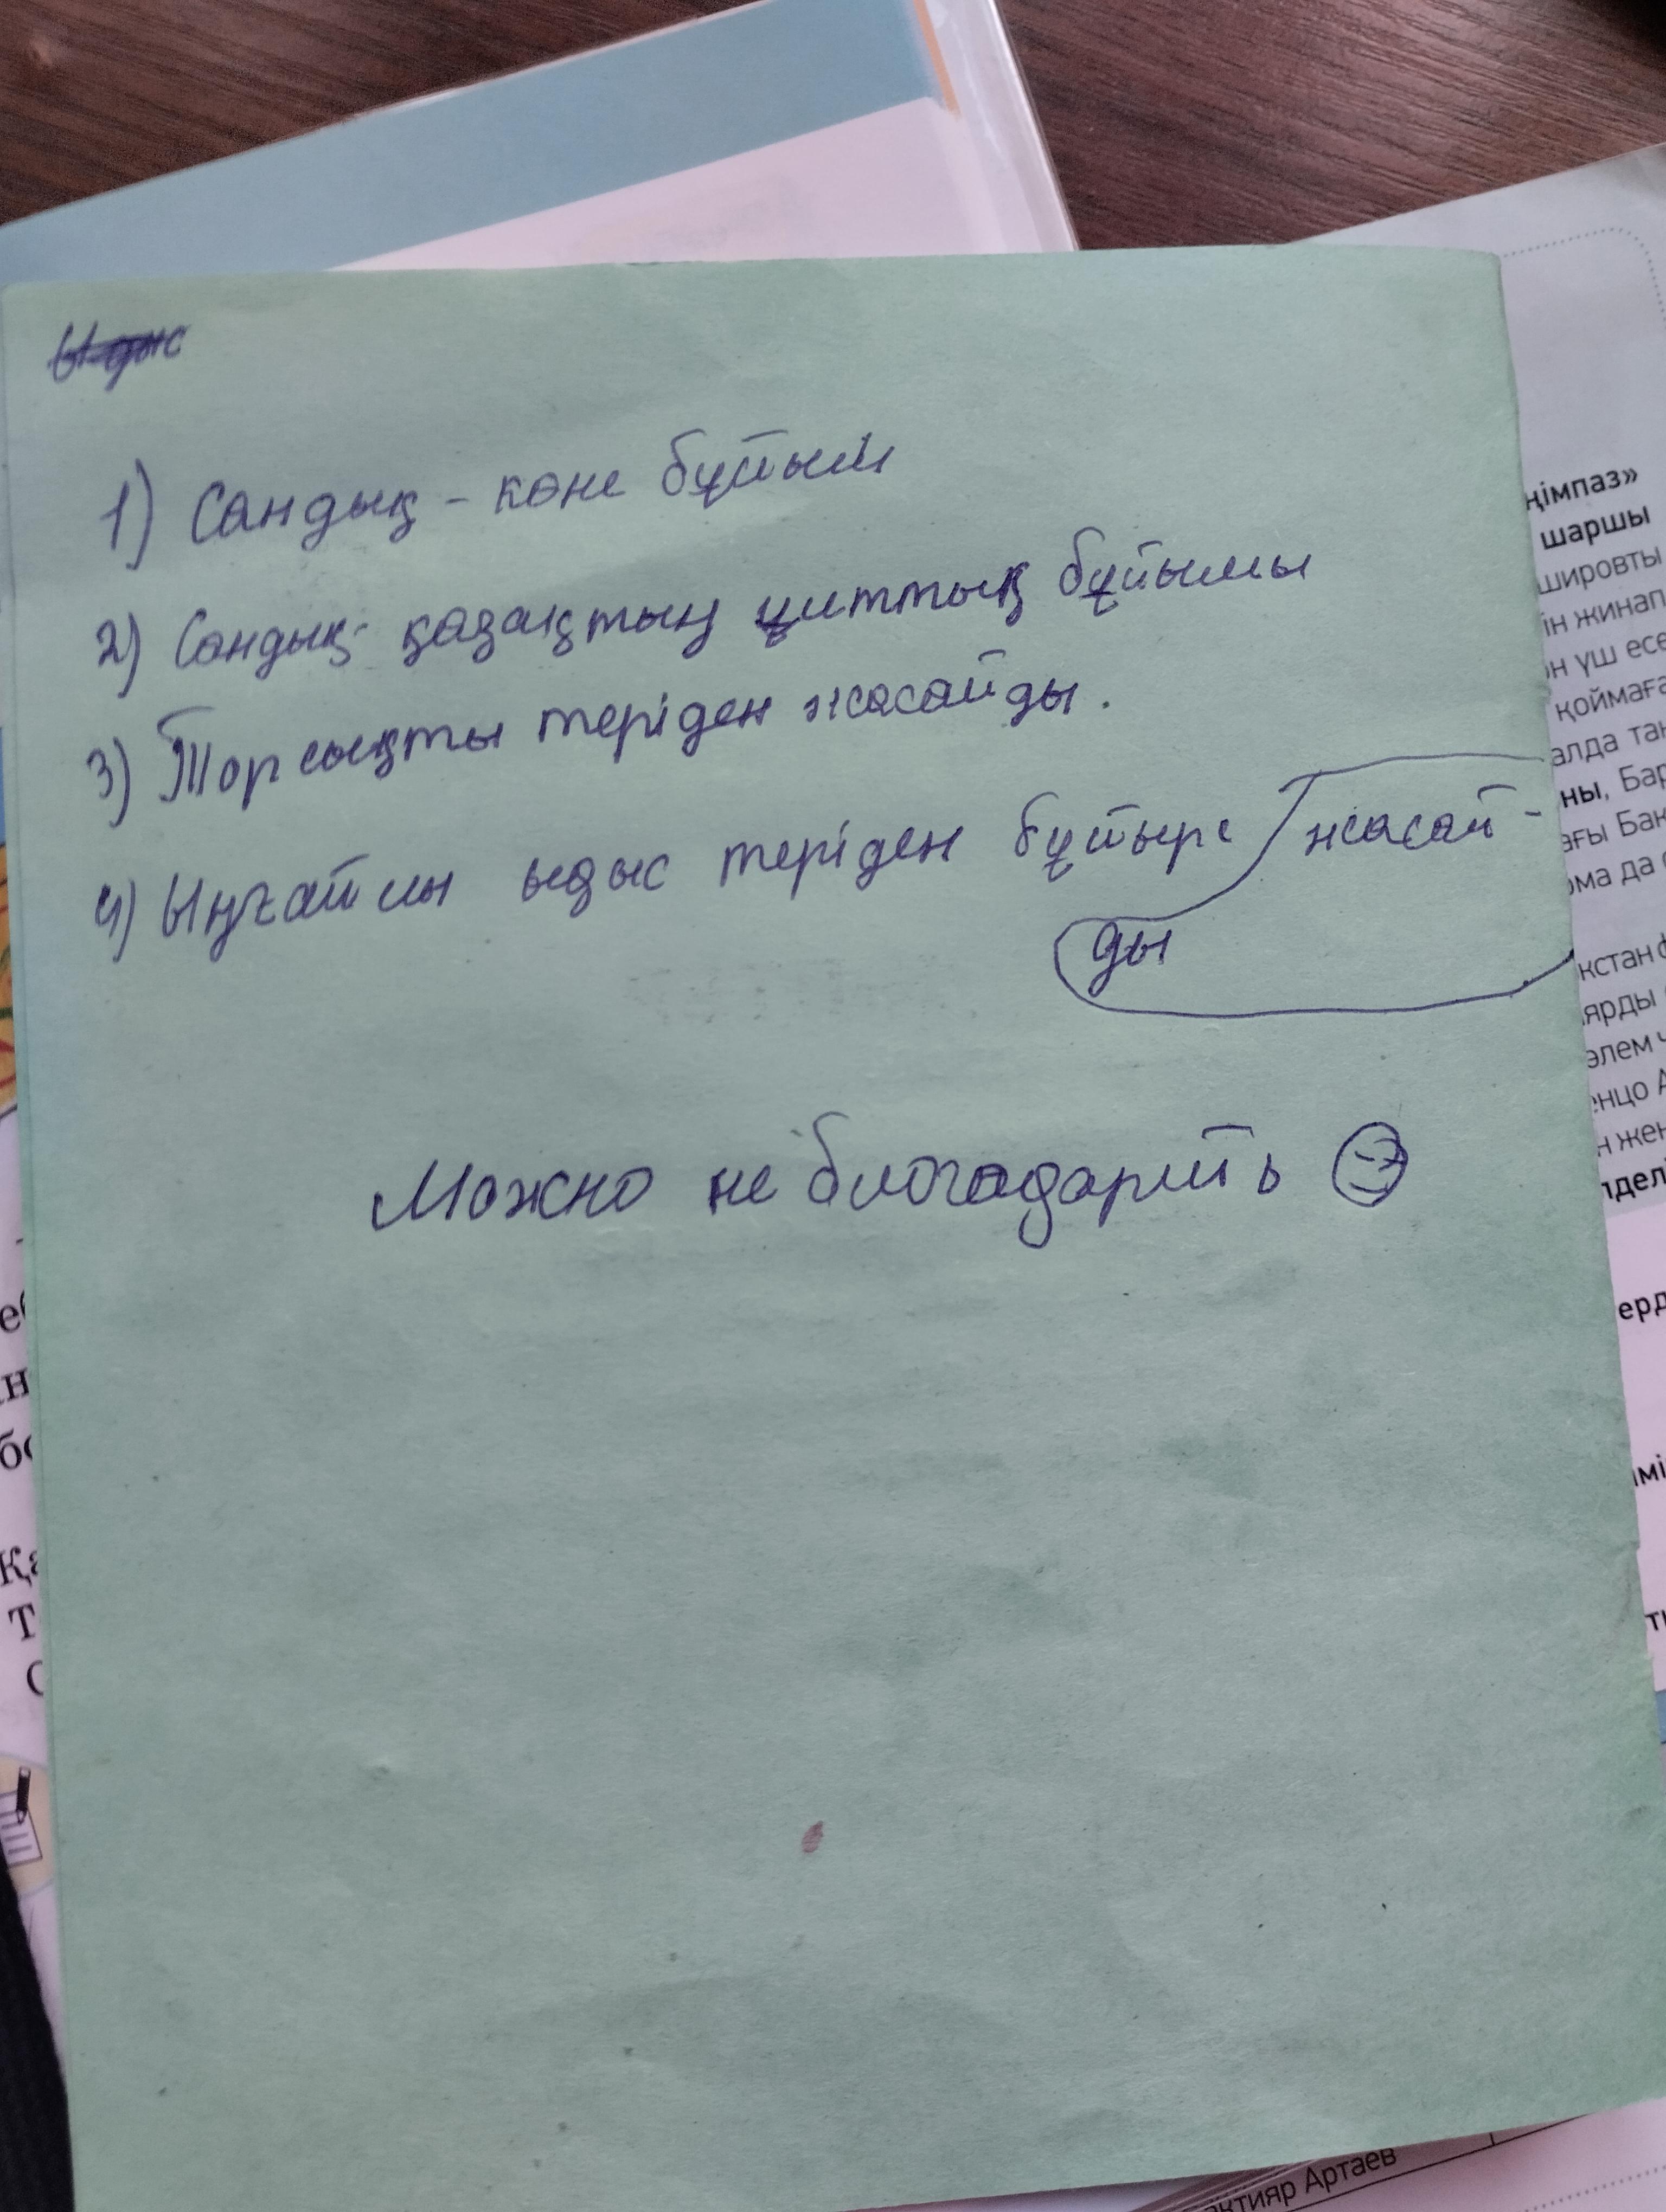 ыдыс
1) Сандық - көне бұйым
2) Сандық - қазақтың ұлттық бұйымы
3) Торсықты теріден жасайды.
4) Ыңғайлы ыдыс теріден бұйырс жасай-
ды
Можно не благодарить
ңімпаз»
шаршы
шировты
ін жинап
н үш есе
қоймаға
алда та
ны, Бар
ағы Бак
ома да
қстан ф
ярды
әлем ч
енцо А
н жең
лделі
ерд
імі
Қа
Т
ақтияр Артаев